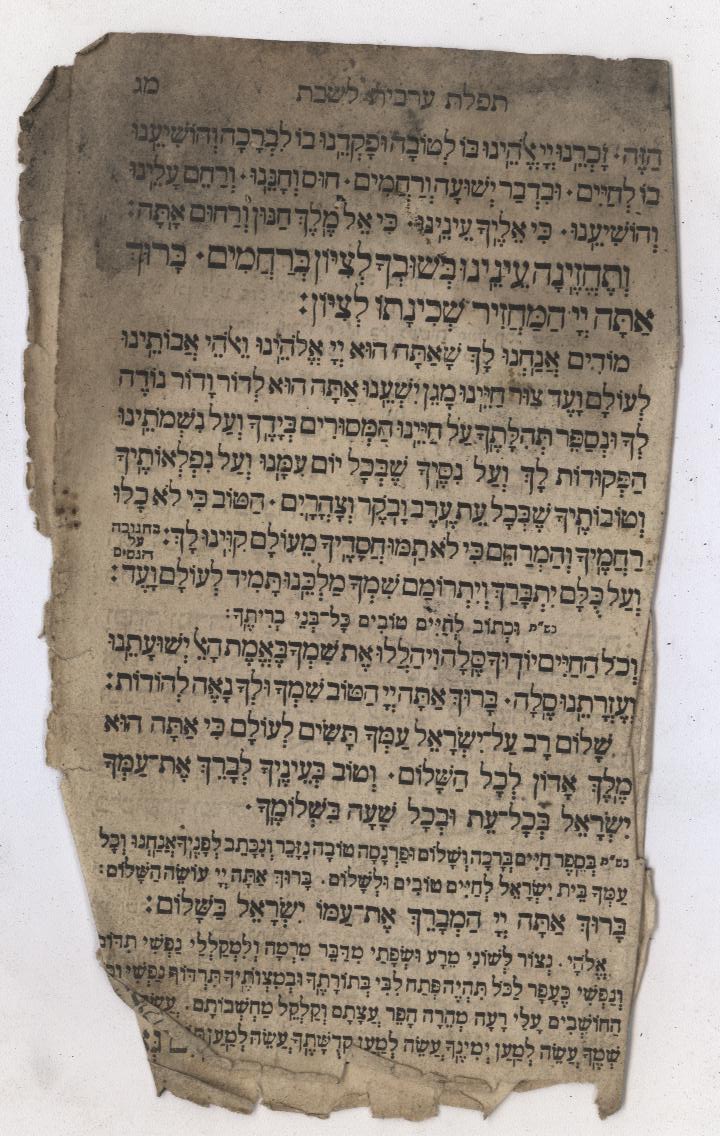 תפלת ערבית לשבת מג
הַזֶּה · זָכְרֵנוּ יְיָ אֱלֹהֵינוּ בּוֹ לְטוֹבָה וּפָקְדֵנוּ בוֹ לִבְרָכָה וְהוֹשִׁיעֵנוּ
בוֹ לְחַיִּים · וּבִדְבַר יְשׁוּעָה וְרַחֲמִים · חוּס וְחָנֵּנוּ · וְרַחֵם עָלֵינוּ
וְהוֹשִׁיעֵנוּ · כִּי אֵלֶיךָ עֵינֵינוּ · כִּי אֵל מֶלֶךְ חַנּוּן וְרַחוּם אָתָּה:
וְתֶחֱזֶינָה עֵינֵינוּ בְּשׁוּבְךָ לְצִיּוֹן בְּרַחֲמִים · בָּרוּךְ
אַתָּה יְיָ הַמַּחֲזִיר שְׁכִינָתוֹ לְצִיּוֹן:
מוֹדִים אֲנַחְנוּ לָךְ שָׁאַתָּה הוּא יְיָ אֱלֹהֵינוּ וֵאלֹהֵי אֲבוֹתֵינוּ
לְעוֹלָם וָעֶד צוּר חַיֵּינוּ מָגֵן יִשְׁעֵנוּ אַתָּה הוּא לְדוֹר וָדוֹר נוֹדֶה
לְךָ וּנְסַפֵּר תְּהִלָּתֶךָ עַל חַיֵּינוּ הַמְּסוּרִים בְּיָדֶךָ וְעַל נִשְׁמֹתֵינוּ
הַפְּקוּדוֹת לָךְ וְעַל נִסֶּיךָ שֶׁבְּכָל יוֹם עִמָּנוּ וְעַל נִפְלְאוֹתֶיךָ
וְטוֹבוֹתֶיךָ שֶׁבְּכָל עֵת עֶרֶב וָבֹקֶר וְצָהֳרָיִם · הַטּוֹב כִּי לֹא כָלוּ
רַחֲמֶיךָ וְהַמְרַחֵם כִּי לֹא תַמּוּ חֲסָדֶיךָ מֵעוֹלָם קִוִּינוּ לָךְ: בחנוכה על הנסים
וְעַל כֻּלָּם יִתְבָּרַךְ וְיִתְרוֹמַם שִׁמְךָ מַלְכֵּנוּ תָּמִיד לְעוֹלָם וָעֶד:
בש״ת וּכְתוֹב לְחַיִּים טוֹבִים כָּל־בְּנֵי בְרִיתֶךָ:
וְכֹל הַחַיִּים יוֹדוּךָ סֶּלָה וִיהַלְלוּ אֶת שִׁמְךָ בֶּאֱמֶת הָאֵל יְשׁוּעָתֵנוּ
וְעֶזְרָתֵנוּ סֶלָה · בָּרוּךְ אַתָּה יְיָ הַטּוֹב שִׁמְךָ וּלְךָ נָאֶה לְהוֹדוֹת:
שָׁלוֹם רָב עַל־יִשְׂרָאֵל עַמְּךָ תָּשִׂים לְעוֹלָם כִּי אַתָּה הוּא
מֶלֶךְ אָדוֹן לְכָל הַשָּׁלוֹם · וְטוֹב בְּעֵינֶיךָ לְבָרֵךְ אֶת־עַמְּךָ
יִשְׂרָאֵל בְּכָל־עֵת וּבְכָל שָׁעָה בִּשְׁלוֹמֶךָ ·
בש״ת בְּסֵפֶר חַיִּים בְּרָכָה וְשָׁלוֹם וּפַרְנָסָה טוֹבָה נִזָּכֵר וְנִכָּתֵב לְפָנֶיךָ אֲנַחְנוּ וְכָל
עַמְּךָ בֵּית יִשְׂרָאֵל לְחַיִּים טוֹבִים וּלְשָׁלוֹם · בָּרוּךְ אַתָּה יְיָ עוֹשֵׂה הַשָּׁלוֹם:
בָּרוּךְ אַתָּה יְיָ הַמְבָרֵךְ אֶת־עַמּוֹ יִשְׂרָאֵל בַּשָּׁלוֹם:
אֱלֹהַי · נְצוֹר לְשׁוֹנִי מֵרָע וּשְׂפָתַי מִדַּבֵּר מִרְמָה וְלִמְקַלְלַי נַפְשִׁי תִדּוֹם
וְנַפְשִׁי כֶּעָפָר לַכֹּל תִּהְיֶה פְּתַח לִבִּי בְּתוֹרָתֶךָ וּבְמִצְוֹתֶיךָ תִּרְדּוֹף נַפְשִׁי
הַחוֹשְׁבִים עָלַי רָעָה מְהֵרָה הָפֵר עֲצָתָם וְקַלְקֵל מַחְשְׁבוֹתָם ·
שְׁמֶךָ עֲשֵׂה לְמַעַן יְמִינֶךָ עֲשֵׂה לְמַעַן קְדֻשָּׁתֶךָ עֲשֵׂה לְמַעַן